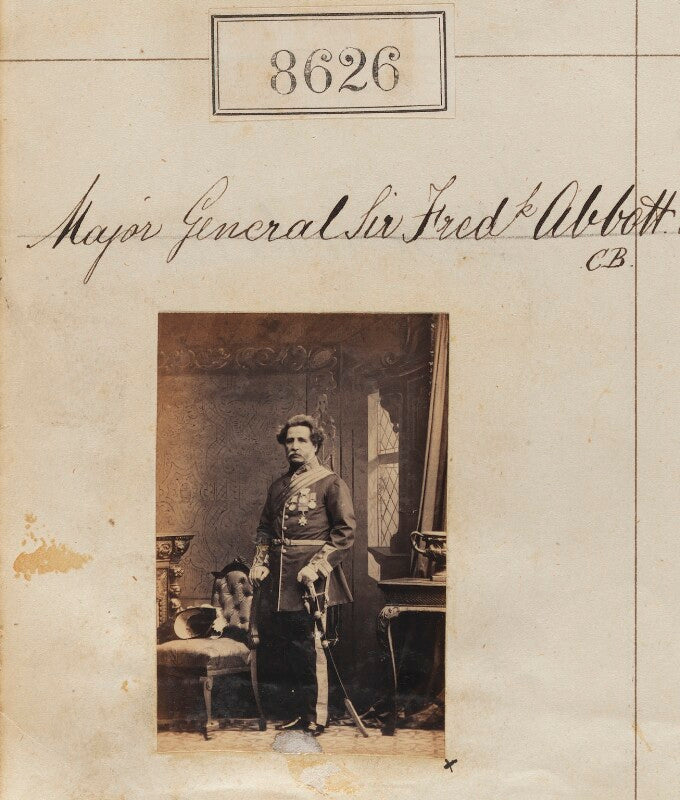 8626
Major General Sir Fredk Abbott.
CB.
x